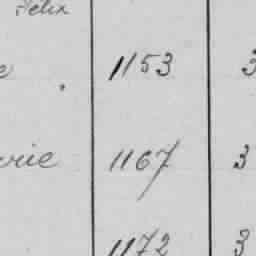 Felix
e 1153 3
rie 1167 3
1172 3